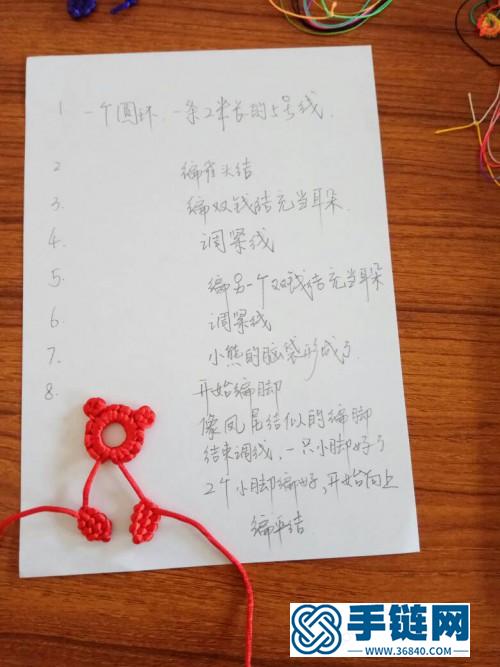 1 一个圆环，一条2米长的5号线.
2 编雀头结
3. 编双钱结充当耳朵.
4. 调紧线
5. 编另一个双钱结充当耳朵
6. 调紧线
7. 小熊的脑袋形成了.
8. 开始编脚
像凤尾结似的编脚
结束调线，一只小脚好了
2个小脚编好，开始向上
编平结
手链网
www.36840.com